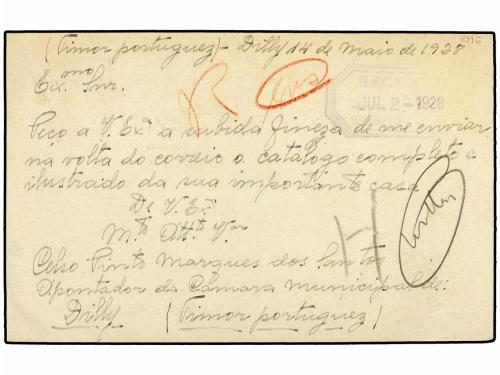 EME
(Timor portuguez) - Dilly 14 de Maio de 1928
Ex.mo Snr.
REC'D
JUL 2 - 1928
Peço a V. Ex.ª a subida fineza de me enviar
na volta do correio o catalogo completo e
ilustrado da sua importante casa
De V. Ex.ª
M.to Att.to V.or
Celso Pinto Marques dos Santos
Apontador da Câmara Municipal de:
Dilly (Timor portuguez)